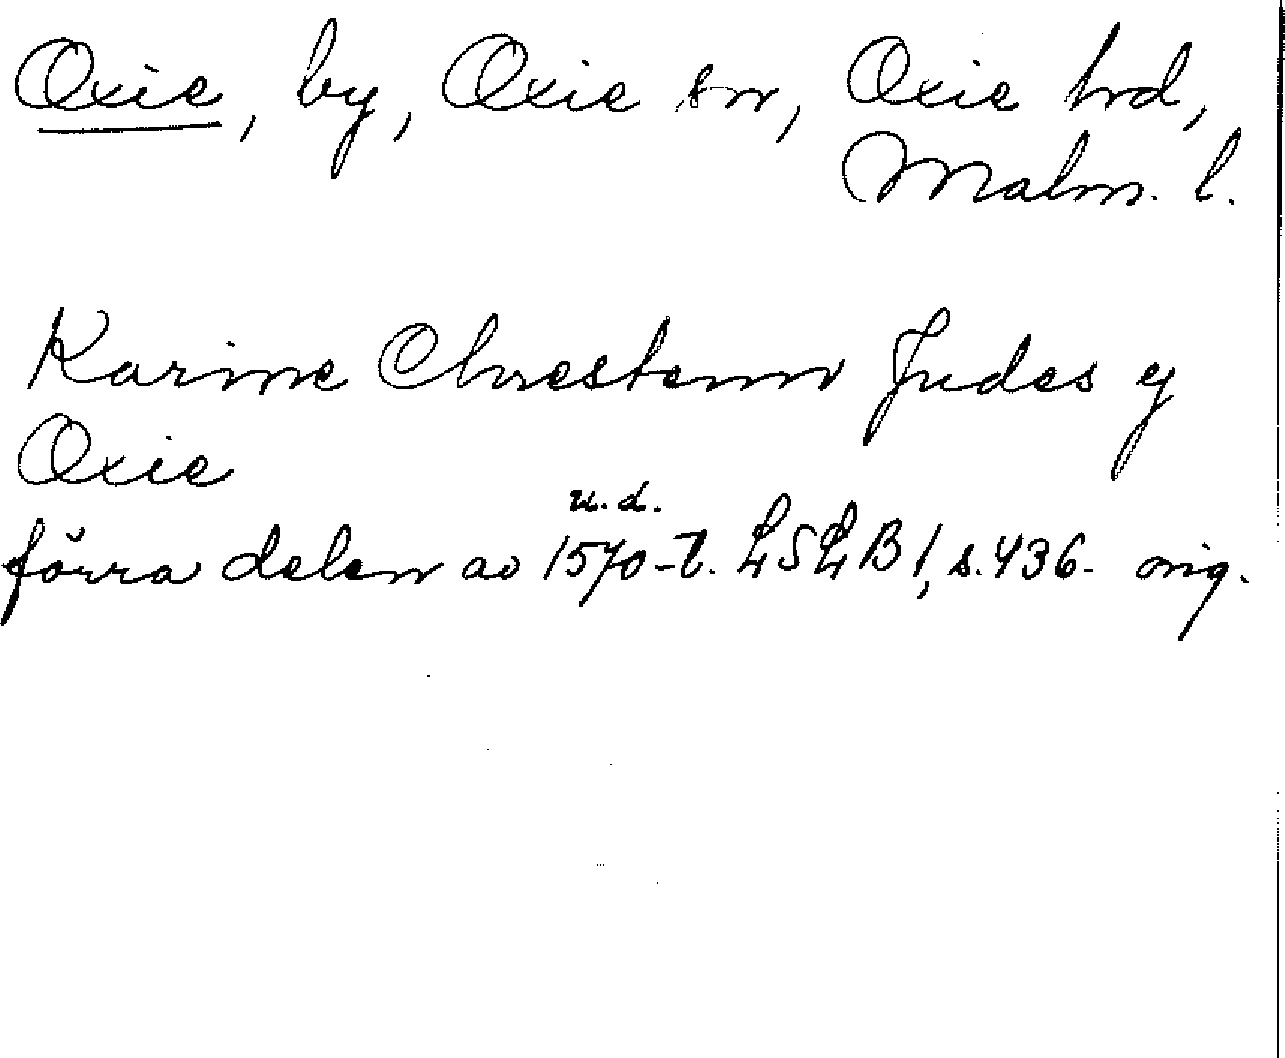 Oxie, by, Oxie sn, Oxie hrd,
Malm. l.
Karine Chrestenn Judes y
Oxie
u.d.
förra delen av 1570-t. LSLB 1, s. 436. orig.